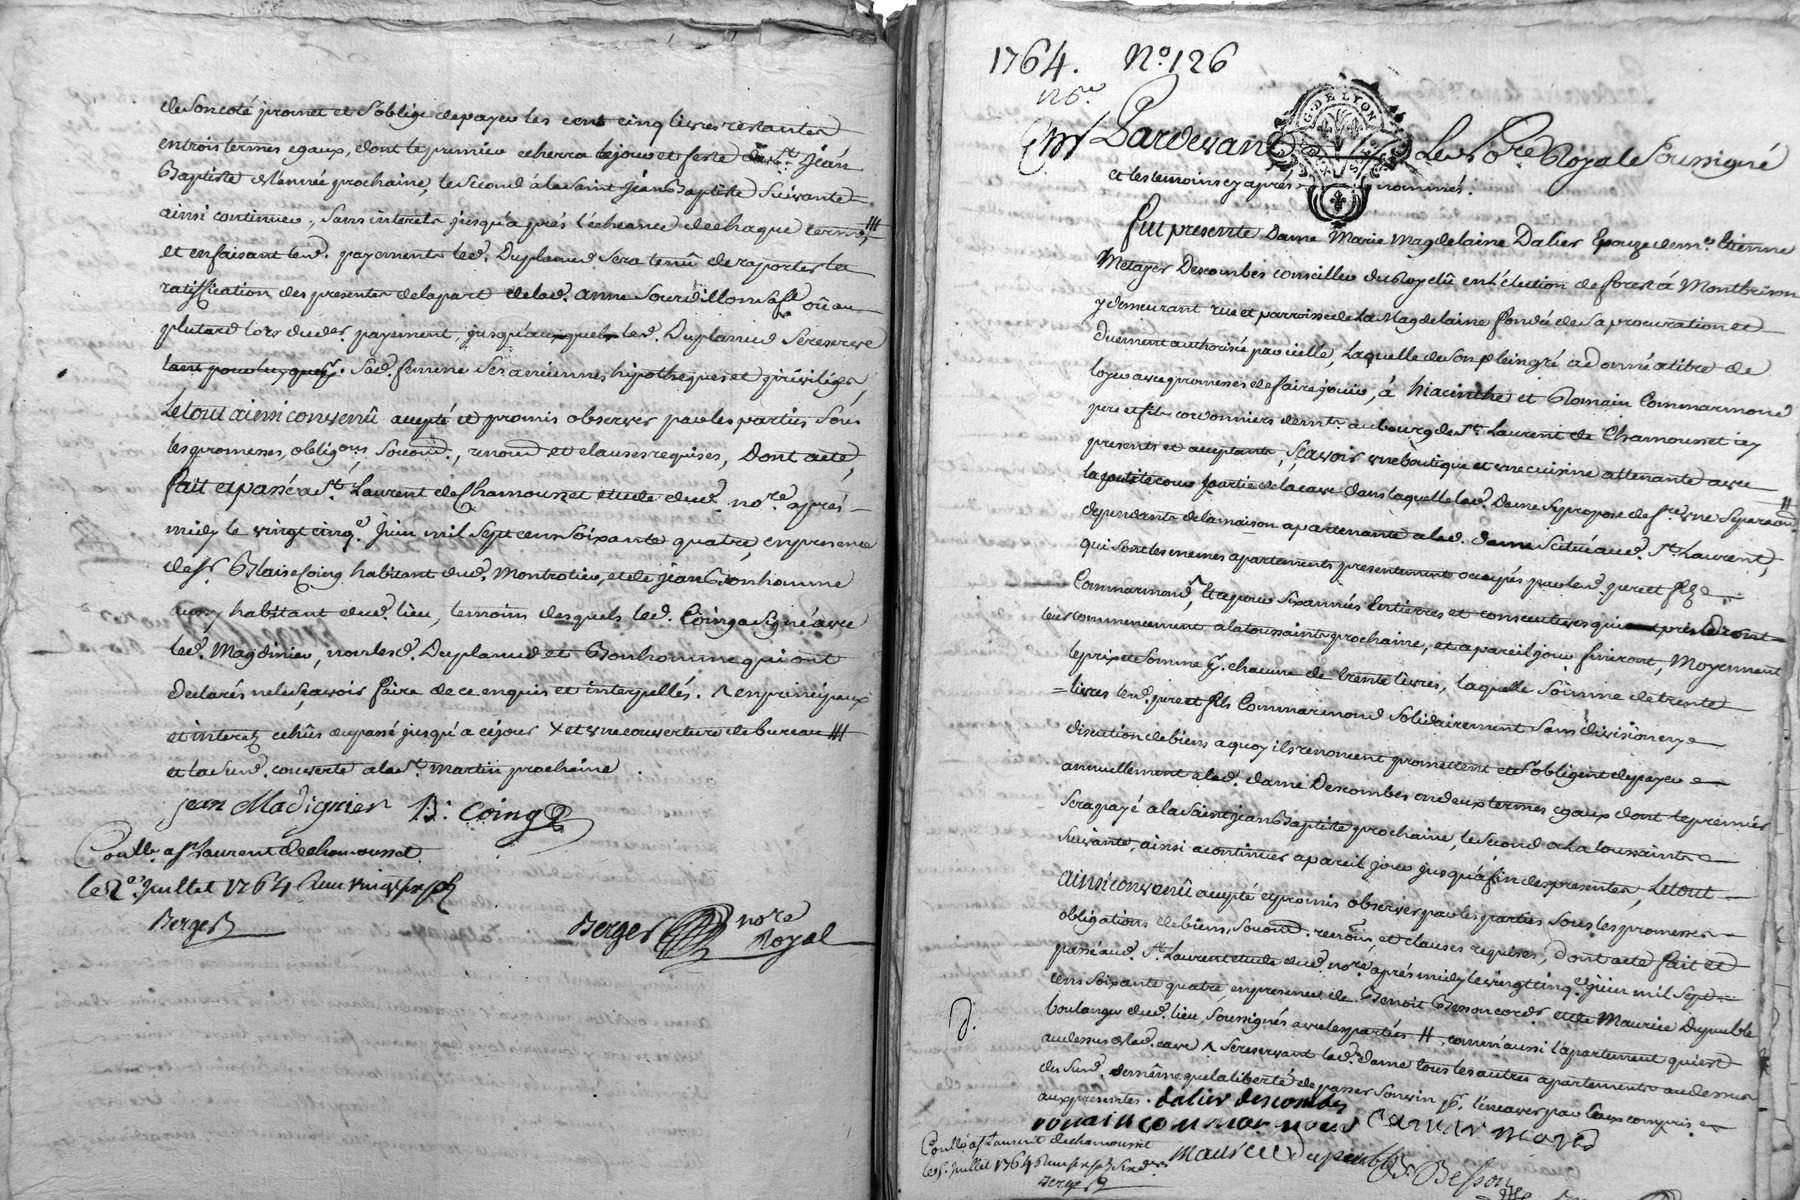 de son coté promet et s'oblige de payer les cent cinq livres restantes
en trois termes egaux, dont le premier echerra le jour et feste de St. Jean
Baptiste de l'année prochaine, le second a la Saint Jean Baptiste suivante
ainsi continuer, sans interets jusqu'aprés l'écheance de chaque terme,
et en faisant led. payement led. Duplanud sera tenû de raporter la
ratiffication des presentes de la part de lad. anne Sourdillon sa fe. oû au
plutard lors du der. payement, jusqu'auquel led. Duplanud se reserve
sad. femme ses anciennes hypotheques et privilèges,
Le tout ainsi convenû accepté et promis observer par les parties sous
les promesses, obligons, soumd., renond et clauses requises, Dont acte,
fait et passé a St. Laurent de Chamousset etude dud. nore. aprés
midy le vingt cinqe. Juin mil sept cens soixante quatre, en presence
de sr. Blaise Coing habitant dud. Montrotier, et de Jean Bonhomme
aussy habitant dud. lieu, temoins desquels led. Coing a signé avec
led. Magdinier, non lesd. Duplanud et Bonhomme qui ont
declarés ne le sçavoir faire de ce enquis et interpellés. en principaux
et interets echûs du passé jusqu'a ce jour X et une couverture de bureau
et la sud. couverte a la St. Martin prochaine
jean Madignier B. Coing
Conllé. a St Laurent de chamousset
le 2e. Juillet 1764
Berger
Berger nore Royal
1764. No. 126
Pardevant Le Nore. Royal Soussigné
G. DE LYON
et les temoins cy aprés nommés.
fut presente Dame Marie Magdelaine Dalier Epouze de mr. Etienne
Metayer Descombes conseiller du Roy en l'élection de forest á Montbrison
y demeurant rue et parroisse de La Magdelaine fondée de sa procuration et
duement authorisée par icelle, Laquelle de son plein gré a donné a titre de
loyer avec promesses de faire jouir, à hiacinthe et Romain Commarmond
pere et fils cordonniers demts. au bourg de St. Laurent de Chamousset icy
presents et acceptants, Sçavoir une boutique et une cuisine attenante avec
la petite cour partie de la cave dans laquelle lad. Dame se propose de fre. une separaon
dependants de la maison apartenante a lad. dame scituée aud. St. Laurent,
qui sont les memes apartements presentement occupés par led. pere et fils
Commarmond, Et ce pour six années Entierres et consecutives qui prendront
leur commencement a la toussaints prochaine, et a pareil jour finiront, Moyennant
le prix et somme pr. chacune de trente livres, laquelle somme de trente
livres led. pere et fils Commarmond solidairement sans division ny
discution de biens a quoy ils renoncent promettent et s'obligent de payer
annuellement a lad. dame Descombes en deux termes egaux dont le premier
sera payé a la Saint Jean Baptiste prochaine, le second a la toussaints
suivante, ainsi a continuer a pareil jour jusqu'a fin des presentes, Le tout
ainsi convenû accepté et promis observer par les parties sous les promesses
obligations de biens, soumd. renon, et clauses requises, dont acte fait et
passé aud. St. Laurent etude dud. nore aprés midy le vingt cinqe. juin mil sept
cens soixante quatre en presence de Benoit Besson et de Maurice Dupuble
boulanger dud. lieu, soussignés avec les parties comm'aussi l'apartement qui est
au dessus de lad. cave se reservant lad. dame tous les autres apartements au dessus
des sud. de même que la liberté de passer son vin pr. l'encaver par
aux presentes. dalier descombes
romain commarmond commarmond
Maurice dupuble B Besson
Conllé. a St Laurent de chamousset
le 2e. Juillet 1764
Berger